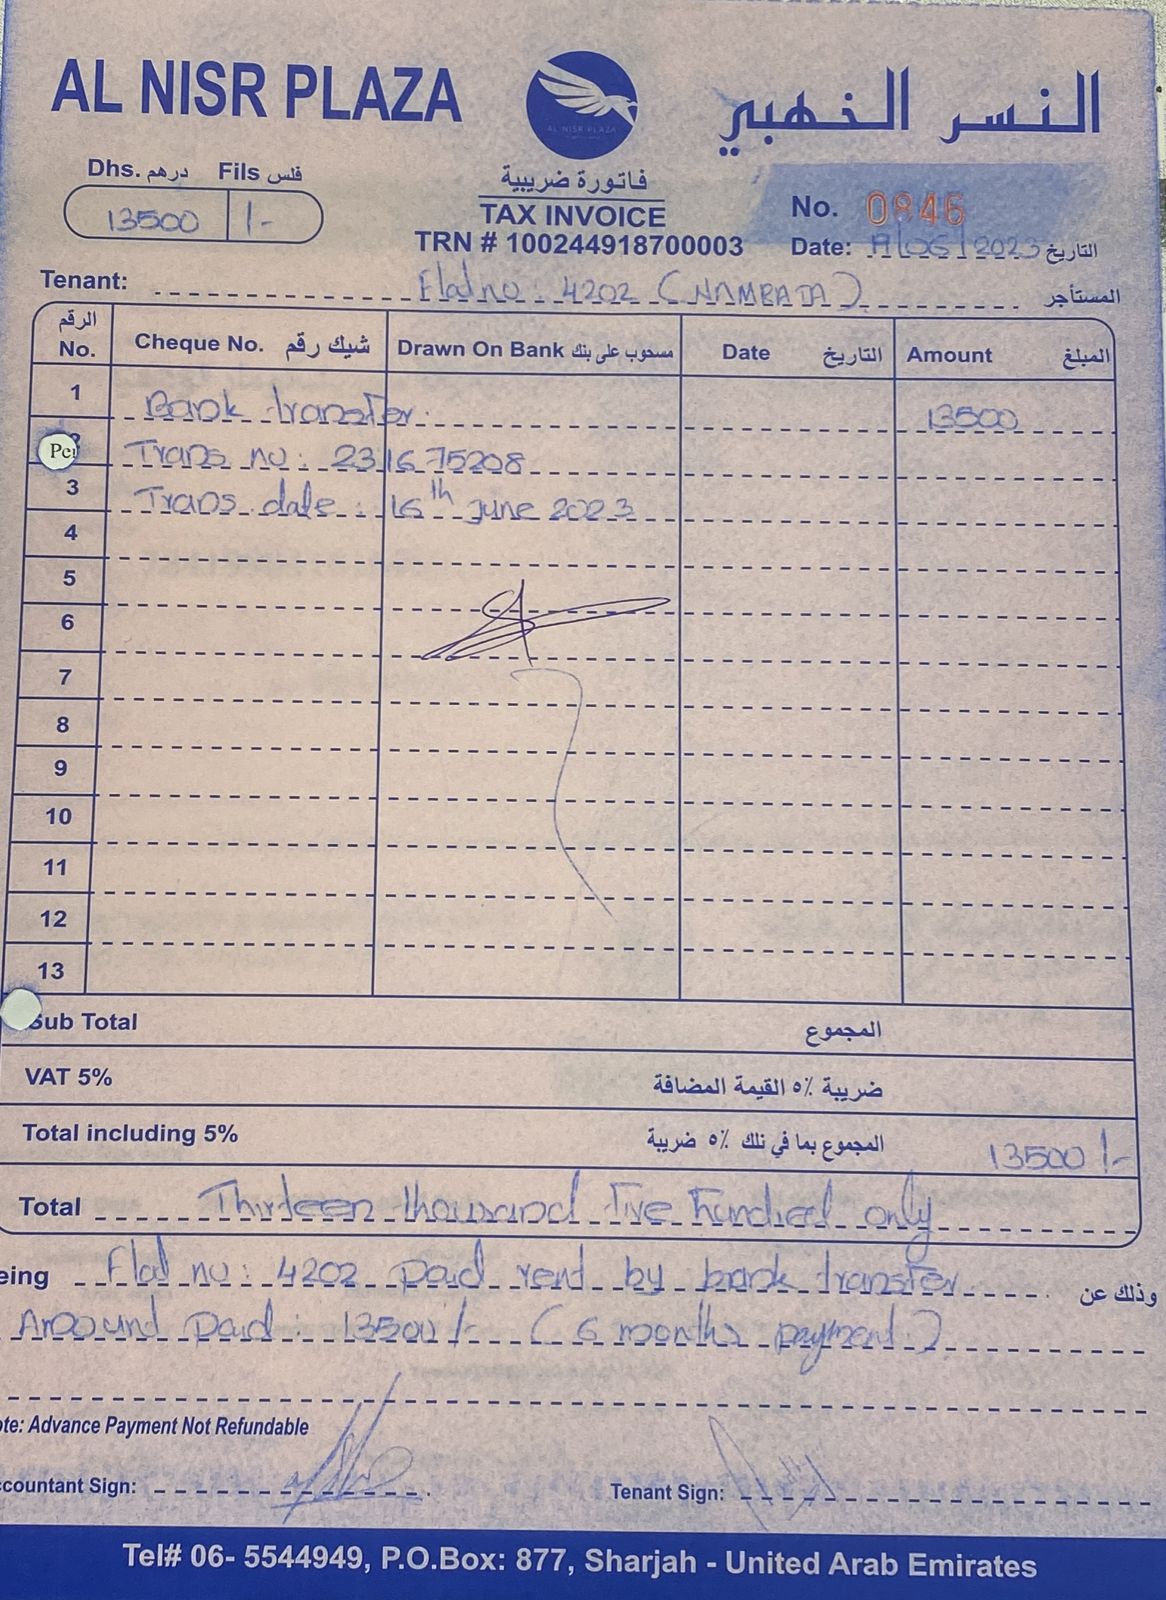 AL NISR PLAZA
AL NISR PLAZA
النسر الذهبي
Dhs. درهم Fils فلس
13500 /-
فاتورة ضريبية
TAX INVOICE
TRN # 100244918700003
No. 0846
Date: /06/2023 التاريخ
Tenant: Flat no: 4202 (NAMRATA) المستأجر
الرقم No. Cheque No. شيك رقم Drawn On Bank مسحوب على بنك Date التاريخ Amount المبلغ
1 Bank transfer. 13500
Per Trans no: 231675208
3 Trans date: 16th June 2023
4
5
6
7
8
9
10
11
12
13
Sub Total المجموع
VAT 5% ضريبة ٥٪ القيمة المضافة
Total including 5% المجموع بما في ذلك ٥٪ ضريبة 13500/-
Total Thirteen thousand five hundred only
eing Flat no: 4202 paid rent by bank transfer. وذلك عن
Amount paid: 13500/- (6 months payment)
ote: Advance Payment Not Refundable
ccountant Sign:
Tenant Sign:
Tel# 06- 5544949, P.O.Box: 877, Sharjah - United Arab Emirates